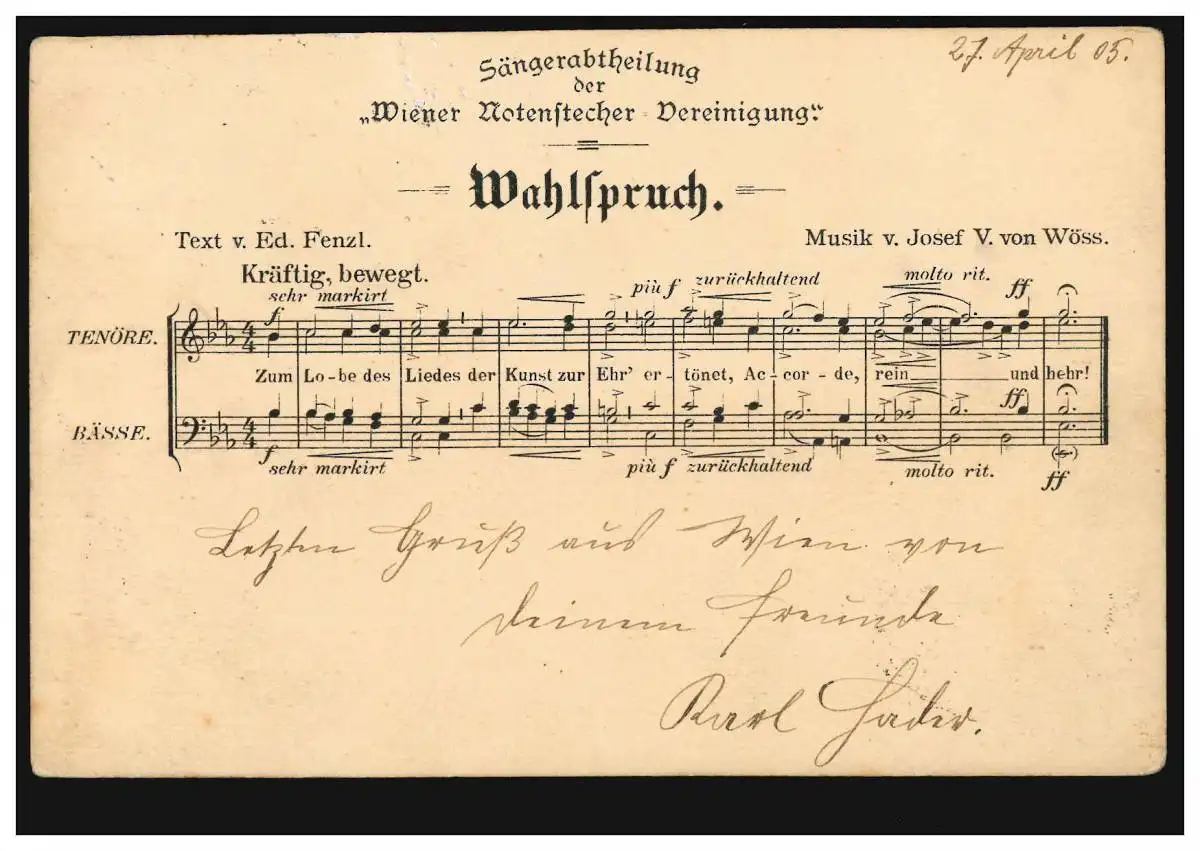 27. April 05.
Sängerabtheilung
der
„Wiener Notenstecher-Vereinigung."
Wahlspruch.
Text v. Ed. Fenzl.
Musik v. Josef V. von Wöss.
Kräftig, bewegt.
sehr markirt
più f zurückhaltend
molto rit.
f
ff
TENÖRE.
4
4
Zum Lo-be des Liedes der Kunst zur Ehr' er-tönet, Ac-cor-de, rein und hehr!
BÄSSE.
4
4
ff
f
sehr markirt
più f zurückhaltend
molto rit.
ff
Letzten Gruß aus Wien von
deinem Freunde
Karl Hader.